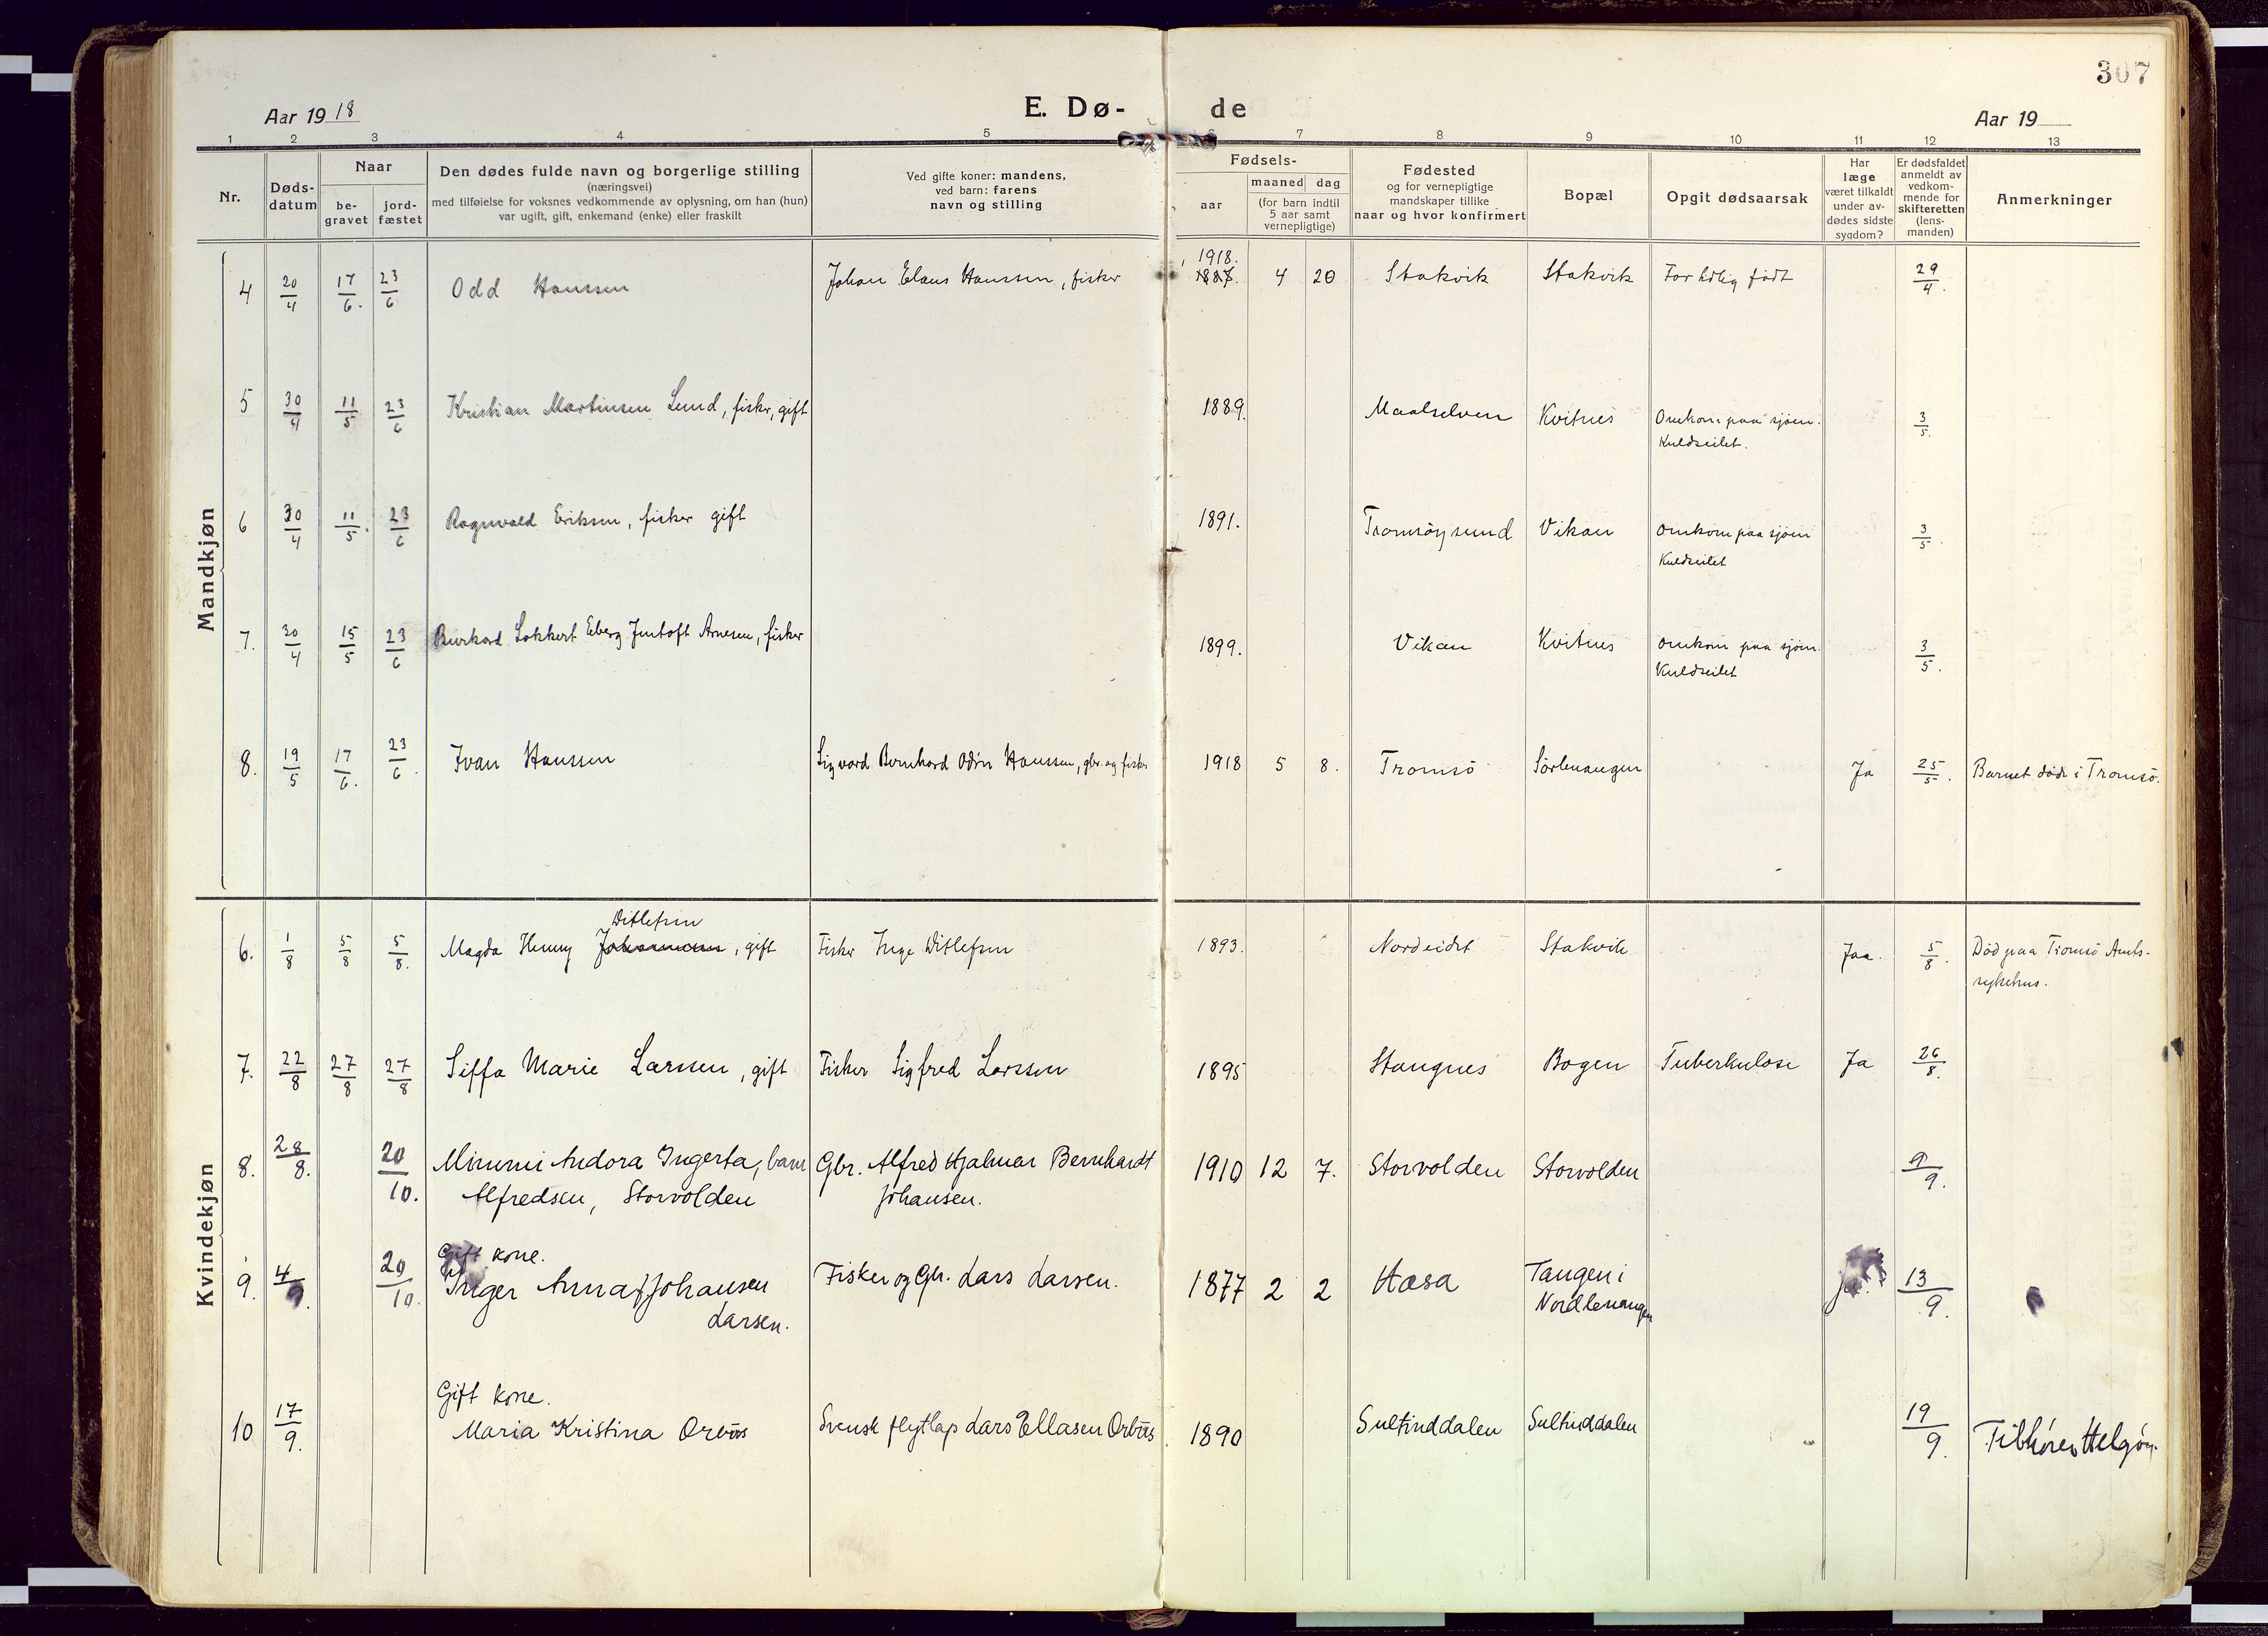 307
Aar 1918
E. Dø-
de
Aar 19
1 2 3 4 5 6 7 8 9 10 11 12 13
Nr.
Døds-
datum
Naar
be-
gravet
jord-
fæstet
Den dødes fulde navn og borgerlige stilling
(næringsvei)
med tilføielse for voksnes vedkommende av oplysning, om han (hun)
var ugift, gift, enkemand (enke) eller fraskilt
Ved gifte koner: mandens,
ved barn: farens
navn og stilling
Fødsels-
aar
maaned dag
(for barn indtil
5 aar samt
vernepligtige)
Fødested
og for vernepligtige
mandskaper tillike
naar og hvor konfirmert
Bopæl
Opgit dødsaarsak
Har
læge
været tilkaldt
under av-
dødes sidste
sygdom?
Er dødsfaldet
anmeldt av
vedkom-
mende for
skifteretten
(lens-
manden)
Anmerkninger
Mandkjøn
1918.
4 20/4 17/6. 23/6 Odd Hanssen Johan Claus Hanssen, fisker 1887. 4 20 Stakvik Stakvik For tidlig født 29/4.
5 30/4 11/5 23/6 Kristian Martinsen Lund, fisker, gift 1889. Maalselven Kvitnes Omkom paa sjøen. 3/5.
Kuldseilet.
6 30/4 11/5. 23/6 Ragnvald Eriksen, fisker gift 1891. Tromsøysund Vikan Omkom paa sjøen 3/5.
Kuldseilet
7. 30/4 15/5 23/6 Burkard Lokkert Eberg Jentoft Arnesen, fisker 1899. Vikan Kvitnes Omkom paa sjøen. 3/5.
Kuldseilet
8. 19/5 17/6. 23/6. Ivan Hanssen Sigvard Bernhard Odin Hanssen, gbr. og fisker 1918 5 8. Tromsø Sørlenangen Ja 25/5. Barnet døde i Tromsø.
Kvindekjøn
Ditlefsen
6. 1/8 5/8 5/8. Magda Henny Johannessen, gift Fisker Inge Ditlefsen 1893. Nordeidet Stakvik Jaa. 5/8. Død paa Tromsø Amts-
sykehus.
7. 22/8 27/8 27/8 Siffa Marie Larssen, gift Fisker Sigfred Larssen 1895 Stangnes Bogen Tuberkulose Ja 26/8.
8. 28/8. 20/10. Mimmi Andora Ingerta, barn Gbr. Alfred Hjalmar Bernhardt 1910 12 7. Storvolden Storvolden 9/9.
Alfredsen, Storvolden Johansen.
Gift kone.
9. 4/9. 20/10. Inger Anna Johansen Fisker og Gbr. Lars Larsen. 1877 2 2 Hæsa Tangen i Ja. 13/9.
Larsen. Nordlenangen
Gift kone.
10 17/9. Maria Kristina Orbus Svensk flytlap Lars Ellasen Orbus 1890 Sultinddalen Sultinddalen 19/9. Tilhører Helgøy.